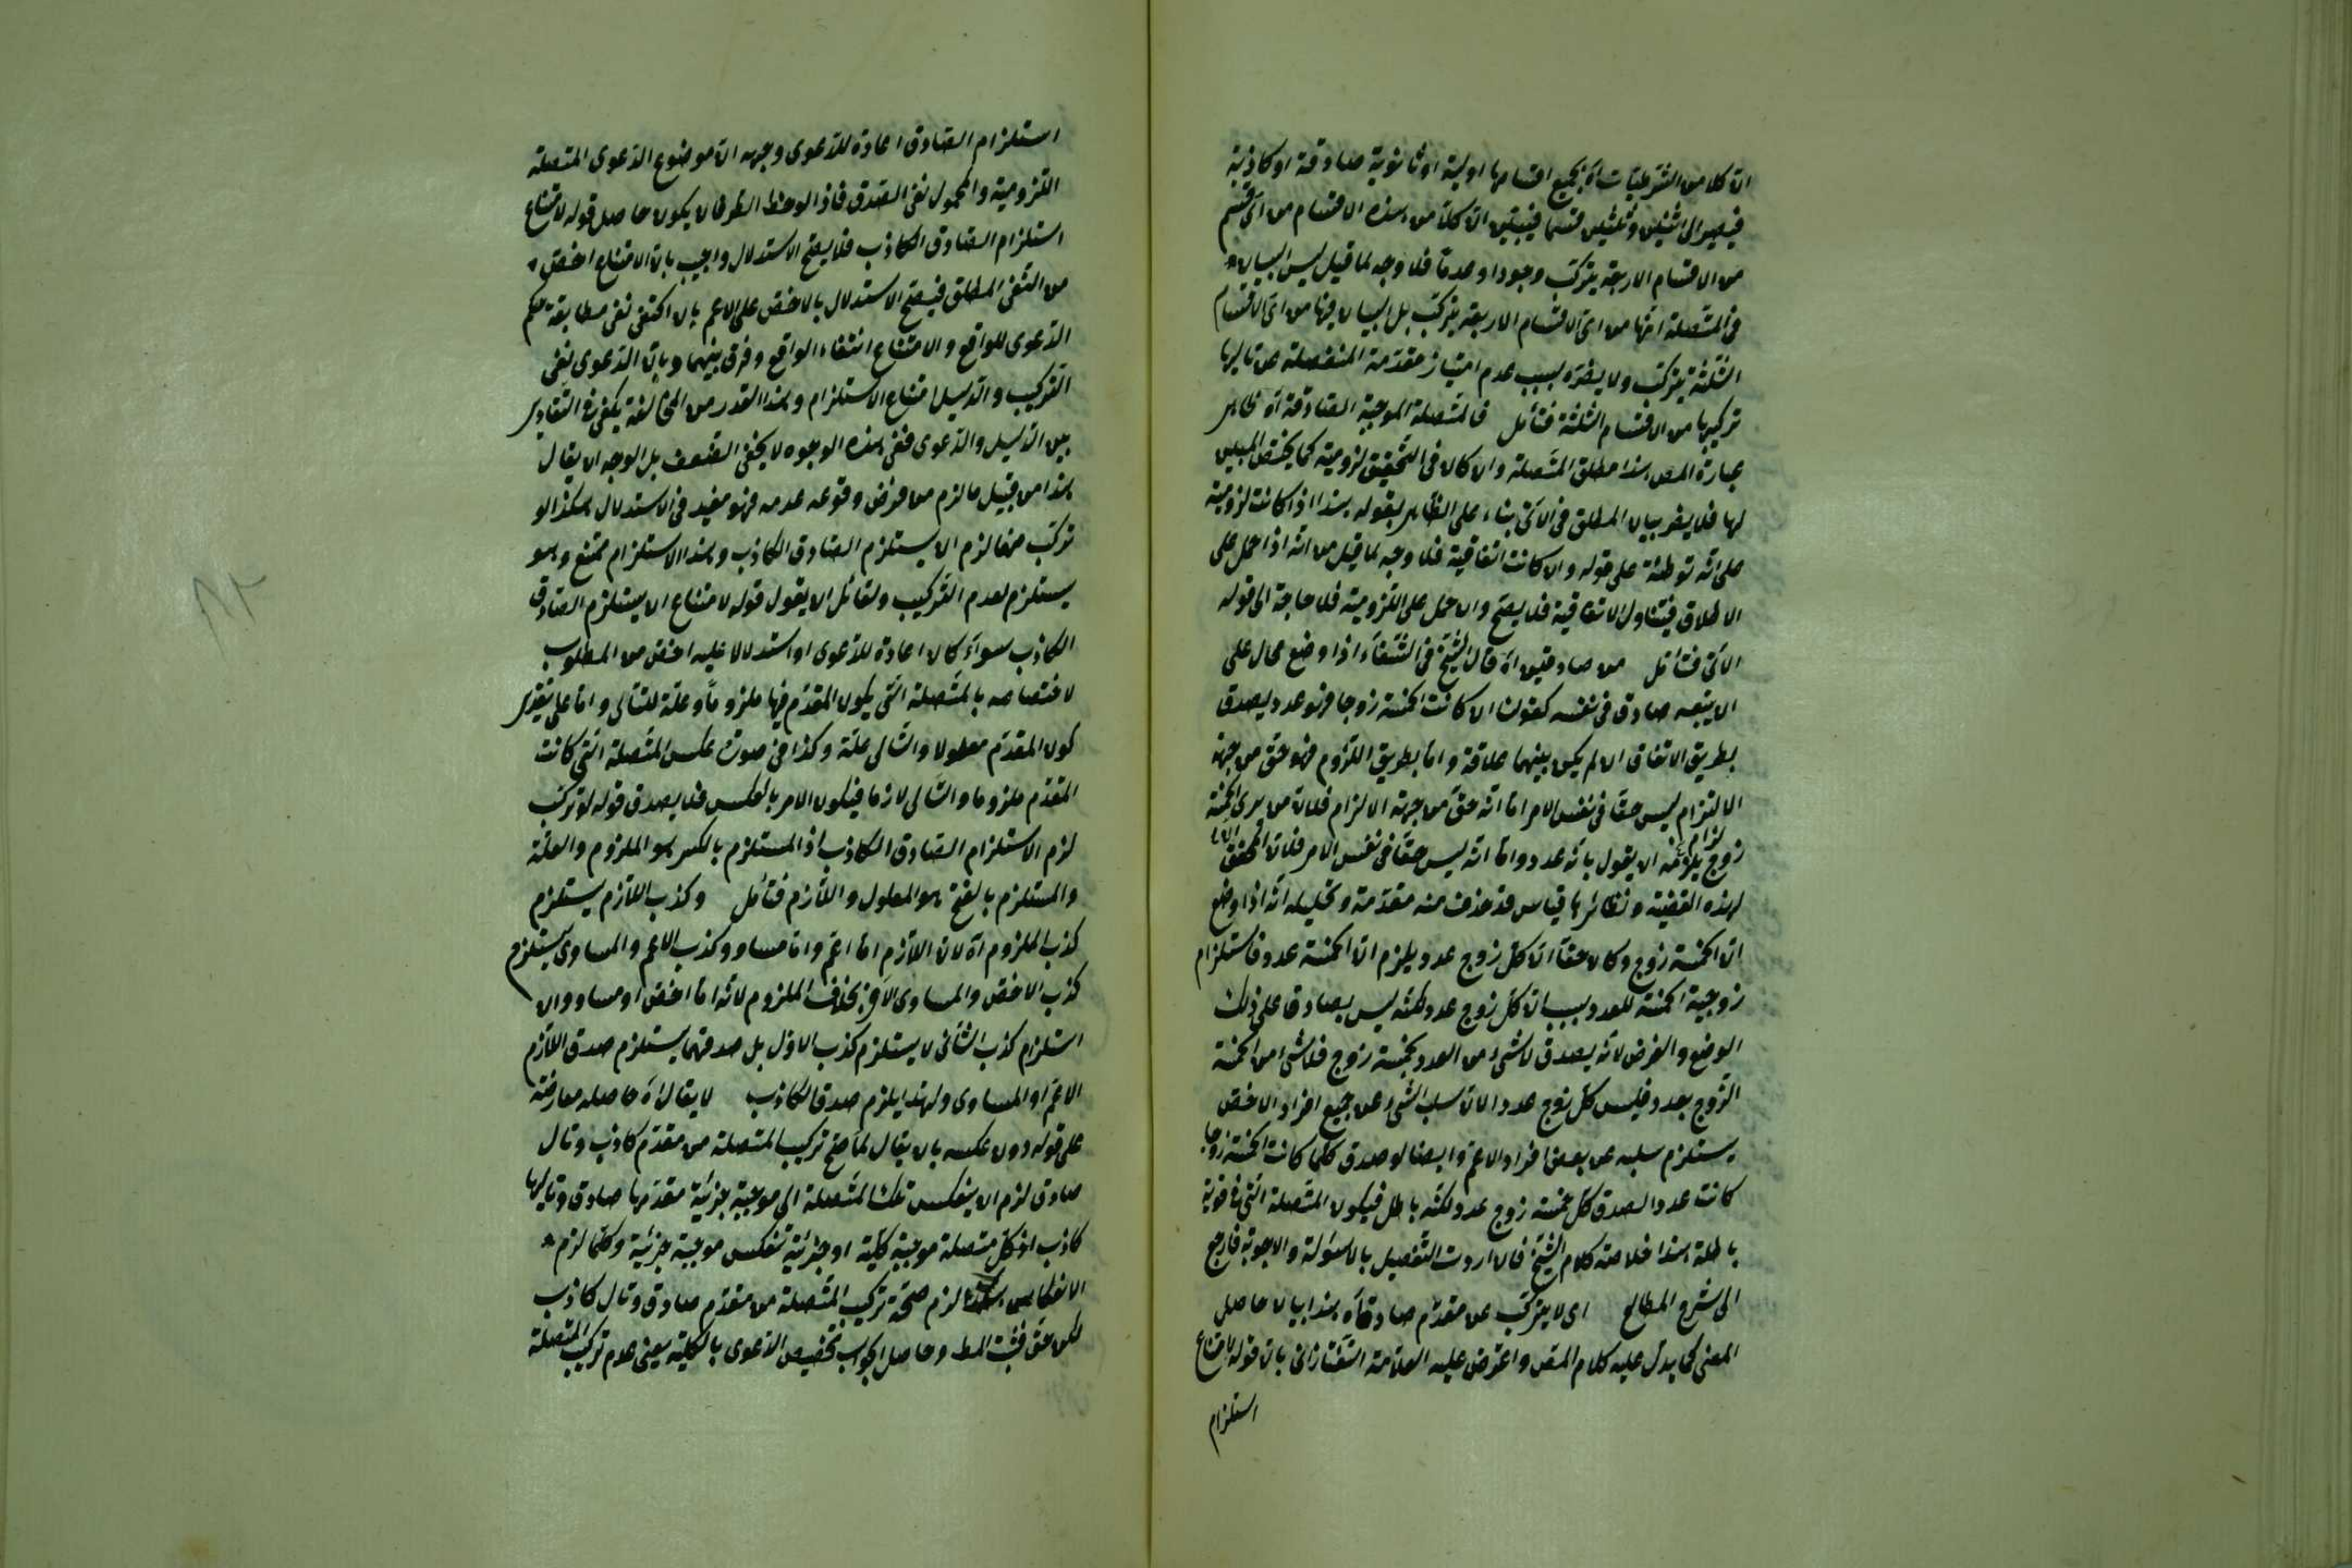 ان كلا من الشرطيات آه بجميع اقسامها اولية او ثانوية صادقة او كاذبة
فيصير الى اثنين وثلثين قسما فيتبين ان كلا من هذه الاقسام من اى قسم
من الاقسام الاربعة يتركب وجودا وعدما فلا وجه لما قيل ليس البيان
فى المتصلة انها من اى الاقسام الاربعة يتركب بل البيان فيها من اى الاقسام
الثلثة يتركب ولا يضره بسبب عدم امتياز مقدمة المنفصلة عن تاليها
تركيبها من الاقسام الثلثة فتأمل فالمتصلة الموجبة الصادقة آه ظاهر
عبارة المص هذا مطلق المتصلة وان كان فى التحقيق لزومية كما يختص المبين
لها فلا يضر بيان المطلق فى الآتى بناء على الظاهر بقوله هذا اذا كانت لزومية
على انه توطئة على قوله وان كانت اتفاقية فلا وجه لما قيل من انه اذا حمل على
الاطلاق فيتناول الاتفاقية فلا يصح وان حمل على اللزومية فلا حاجة الى قوله
الآتى فتأمل من صادقين آه قال الشيخ فى الشفاء اذا وضع محال على
ان يتبعه صادق فى نفسه كقولنا ان كانت الخمسة زوجا فهو عدد يصدق
بطريق الاتفاق ان لم يكن بينهما علاقة واما بطريق اللزوم فهو حق من جهة
الالتزام ليس حقا فى نفس الامر اما انه حق من جهة الالزام فلان من يرى الخمسة
زوج يلزمه ان يقول بانه عدد واما انه ليس حقا فى نفس الامر فلان المحقق
لهذه القضية ونظائرها قياس قد حذف منه مقدمة وتحليله انه اذا وضع
ان الخمسة زوج وكان حقا ان كل زوج عدد يلزم ان الخمسة عدد فاستلزام
زوجية الخمسة للعدد بسبب ان كل زوج عدد لكنه ليس بصادق على ذلك
الوضع والفرض لانه يصدق لا شئ من العدد بخمسة زوج فلا شئ من الخمسة
الزوج بعدد فليس كل زوج عدد الان سلب الشئ عن جميع افراد الاخص
يستلزم سلبه عن بعض افراد الاعم وايضا لو صدق كلما كانت الخمسة زوجا
كانت عددا لصدق كل خمسة زوج عدد لكنه باطل فيكون المتصلة التى فى قوته
باطلة هذا خلاصة كلام الشيخ فان اردت التفصيل بالاسئولة والاجوبة فارجع
الى شرح المطالع اى لا يتركب عن مقدم صادق آه هذا بيان حاصل
المعنى كما يدل عليه كلام المص واعترض عليه العلامة التفتازانى بان قوله لامتناع
استلزام
استلزام الصادق اعادة للدعوى وجهه ان موضوع الدعوى المتصلة
اللزومية والمحمول نفى الصدق فاذا لوحظ الطرفان يكون حاصل قوله لامتناع
استلزام الصادق الكاذب فلا يصح الاستدلال واجيب بان الامتناع اخص
من النفى المطلق فيصح الاستدلال بالاخص على الاعم بان اكتفى نفى مطابقة حكم
الدعوى للواقع والامتناع انتفاء الواقع وفرق بينهما وبان الدعوى نفى
التركيب والدليل امتناع الاستلزام وهذا القدر من المخالفة يكفى فى التغاير
بين الدليل والدعوى ففى هذه الوجوه لا يخفى الضعف بل الوجه ان يقال
هذا من قبيل ما لزم من فرض وقوعه عدمه فهو مفيد فى الاستدلال هكذا لو
تركب منها لزم ان يستلزم الصادق الكاذب وهذا الاستلزام ممتنع وهو
يستلزم لعدم التركيب ولقائل ان يقول قوله لامتناع ان يستلزم الصادق
الكاذب سواء كان اعادة للدعوى او استدلالا عليه اخص من المطلوب
لاختصاصه بالمتصلة التى يكون المقدم فيها ملزوما وعلة للتالى واما على تقدير
كون المقدم معلولا والتالى علة وكذا فى صورة عكس المتصلة التى كانت
المقدم ملزوما والتالى لازما فيكون الامر بالعكس فلا يصدق قوله لو تركب
لزم الاستلزام الصادق الكاذب اذ المستلزم بالكسر هو الملزوم والعلة
والمستلزم بالفتح هو المعلول واللازم فتأمل وكذب اللازم يستلزم
كذب الملزوم آه لان اللازم اما اعم واما مساو وكذب الاعم والمساوى يستلزم
كذب الاخص والمساوى الآخر بخلاف الملزوم لانه اما اخص او مساو وان
استلزام كذب الثانى لا يستلزم كذب الاول بل صدقهما يستلزم صدق اللازم
الاعم او المساوى ولهذا يلزم صدق الكاذب لا يقال آه حاصله معارضة
على قوله دون عكسه بان يقال لما صح تركيب المتصلة من مقدم كاذب وتال
صادق لزم ان ينعكس تلك المتصلة الى موجبة جزئية مقدمها صادق وتاليها
كاذب اذ كل متصلة موجبة كلية او جزئية تنعكس موجبة جزئية وكلما لزم
الانعكاس هكذا لزم صحة تركيب المتصلة من مقدم صادق وتال كاذب
لكن حق فثبت المط وحاصل الجواب تخصيص الدعوى بالكلية يعنى عدم تركيب المتصلة